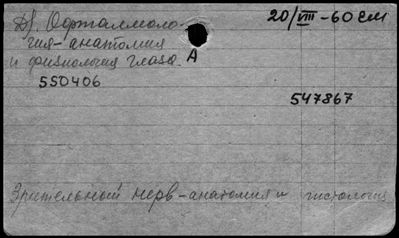 Др. Офтальмоло-
гия-анатомия
и физиология глаза.
А
550406
20/VIII-60 ем
547867
Зрительный нерв-анатомия и гистология